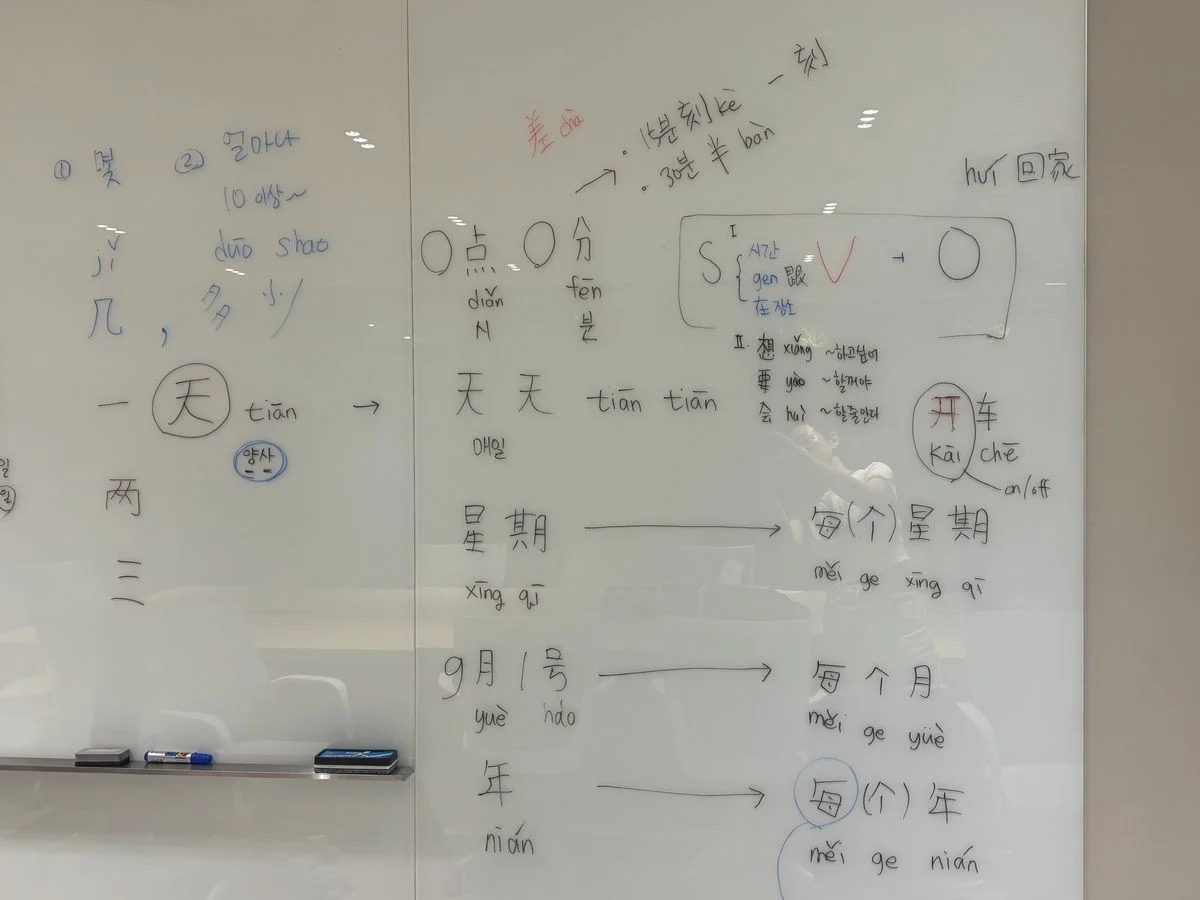 ① 몇
jǐ
几 ,
② 얼마나
10 이상~
duō shao
多 少
一 天 tiān → 天 天 tiān tiān
양사
매일
两
三
일
일
差 chà
· 15분 刻 kè 一 刻
· 30분 半 bàn
○ 点 ○ 分
diǎn fēn
시 분
huí 回家
S I 시간 V + O
gen 跟
在 장소
II. 想 xiǎng ~하고싶어
要 yào ~할꺼야
会 huì ~할줄안다
开 车
kāi chē
on/off
星 期 → 每(个)星 期
xīng qī měi ge xīng qī
9月 1号 → 每 个 月
yuè háo měi ge yüè
年 → 每(个)年
nián měi ge nián